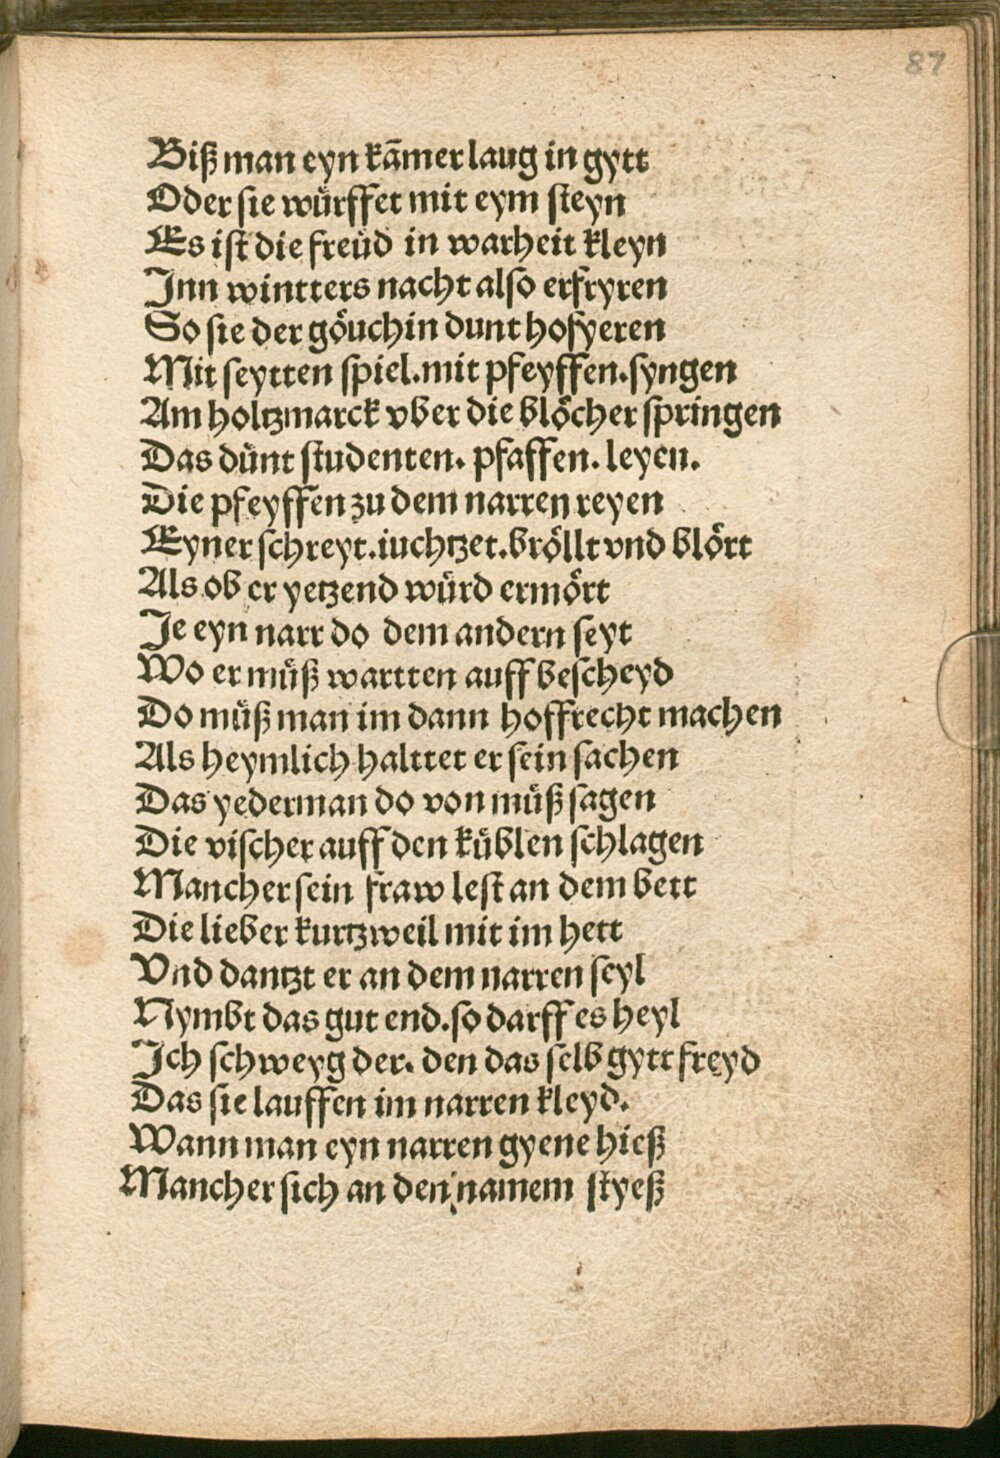 87
Biß man eyn kām̄er laug in gytt
Oder sie wuͤrffet mit eym steyn
Es ist die freuͤd in warheit kleyn
Jnn wintters nacht also erfryren
So sie der goͤuchin dunt hofyeren
Mit seytten spiel. mit pfeyffen. syngen
Am holtzmarck vber die bloͤcher springen
Das duͤnt studenten. pfaffen. leyen.
Die pfeyffen zu dem narren reyen
Eyner schreyt. iuchtzet. broͤllt vnd bloͤrt
Als ob er yetzend wuͤrd ermoͤrt
Je eyn narr do dem andern seyt
Wo er muͤß wartten auff bescheyd
Do muͤß man im dann hoffrecht machen
Als heymlich halttet er sein sachen
Das yederman do von muͤß sagen
Die vischer auff den kuͤblen schlagen
Mancher sein fraw lest an dem bett
Die lieber kurtzweil mit im hett
Vnd dantzt er an dem narren seyl
Nymbt das gut end. so darff es heyl
Jch schweyg der. den das selb gytt freyd
Das sie lauffen im narren kleyd.
Wann man eyn narren gyene hieß
Mancher sich an den namem styeß